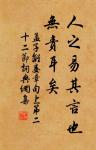 人之易其言也
無責耳矣
孟子離婁章句上第二
十二節詞典網集